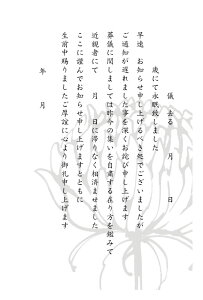 儀 去る 月 日
歳にて永眠致しました
早速 お知らせ申し上げるべき処でございましたが
ご通知が遅れました事を深くお詫び申し上げます
葬儀に関しましては昨今の集いを自粛する在り方を鑑みて
近親者にて 月 日に滞りなく相済ませました
ここに謹んでお知らせ申し上げますとともに
生前中賜りましたご厚誼に心より御礼申し上げます
年 月